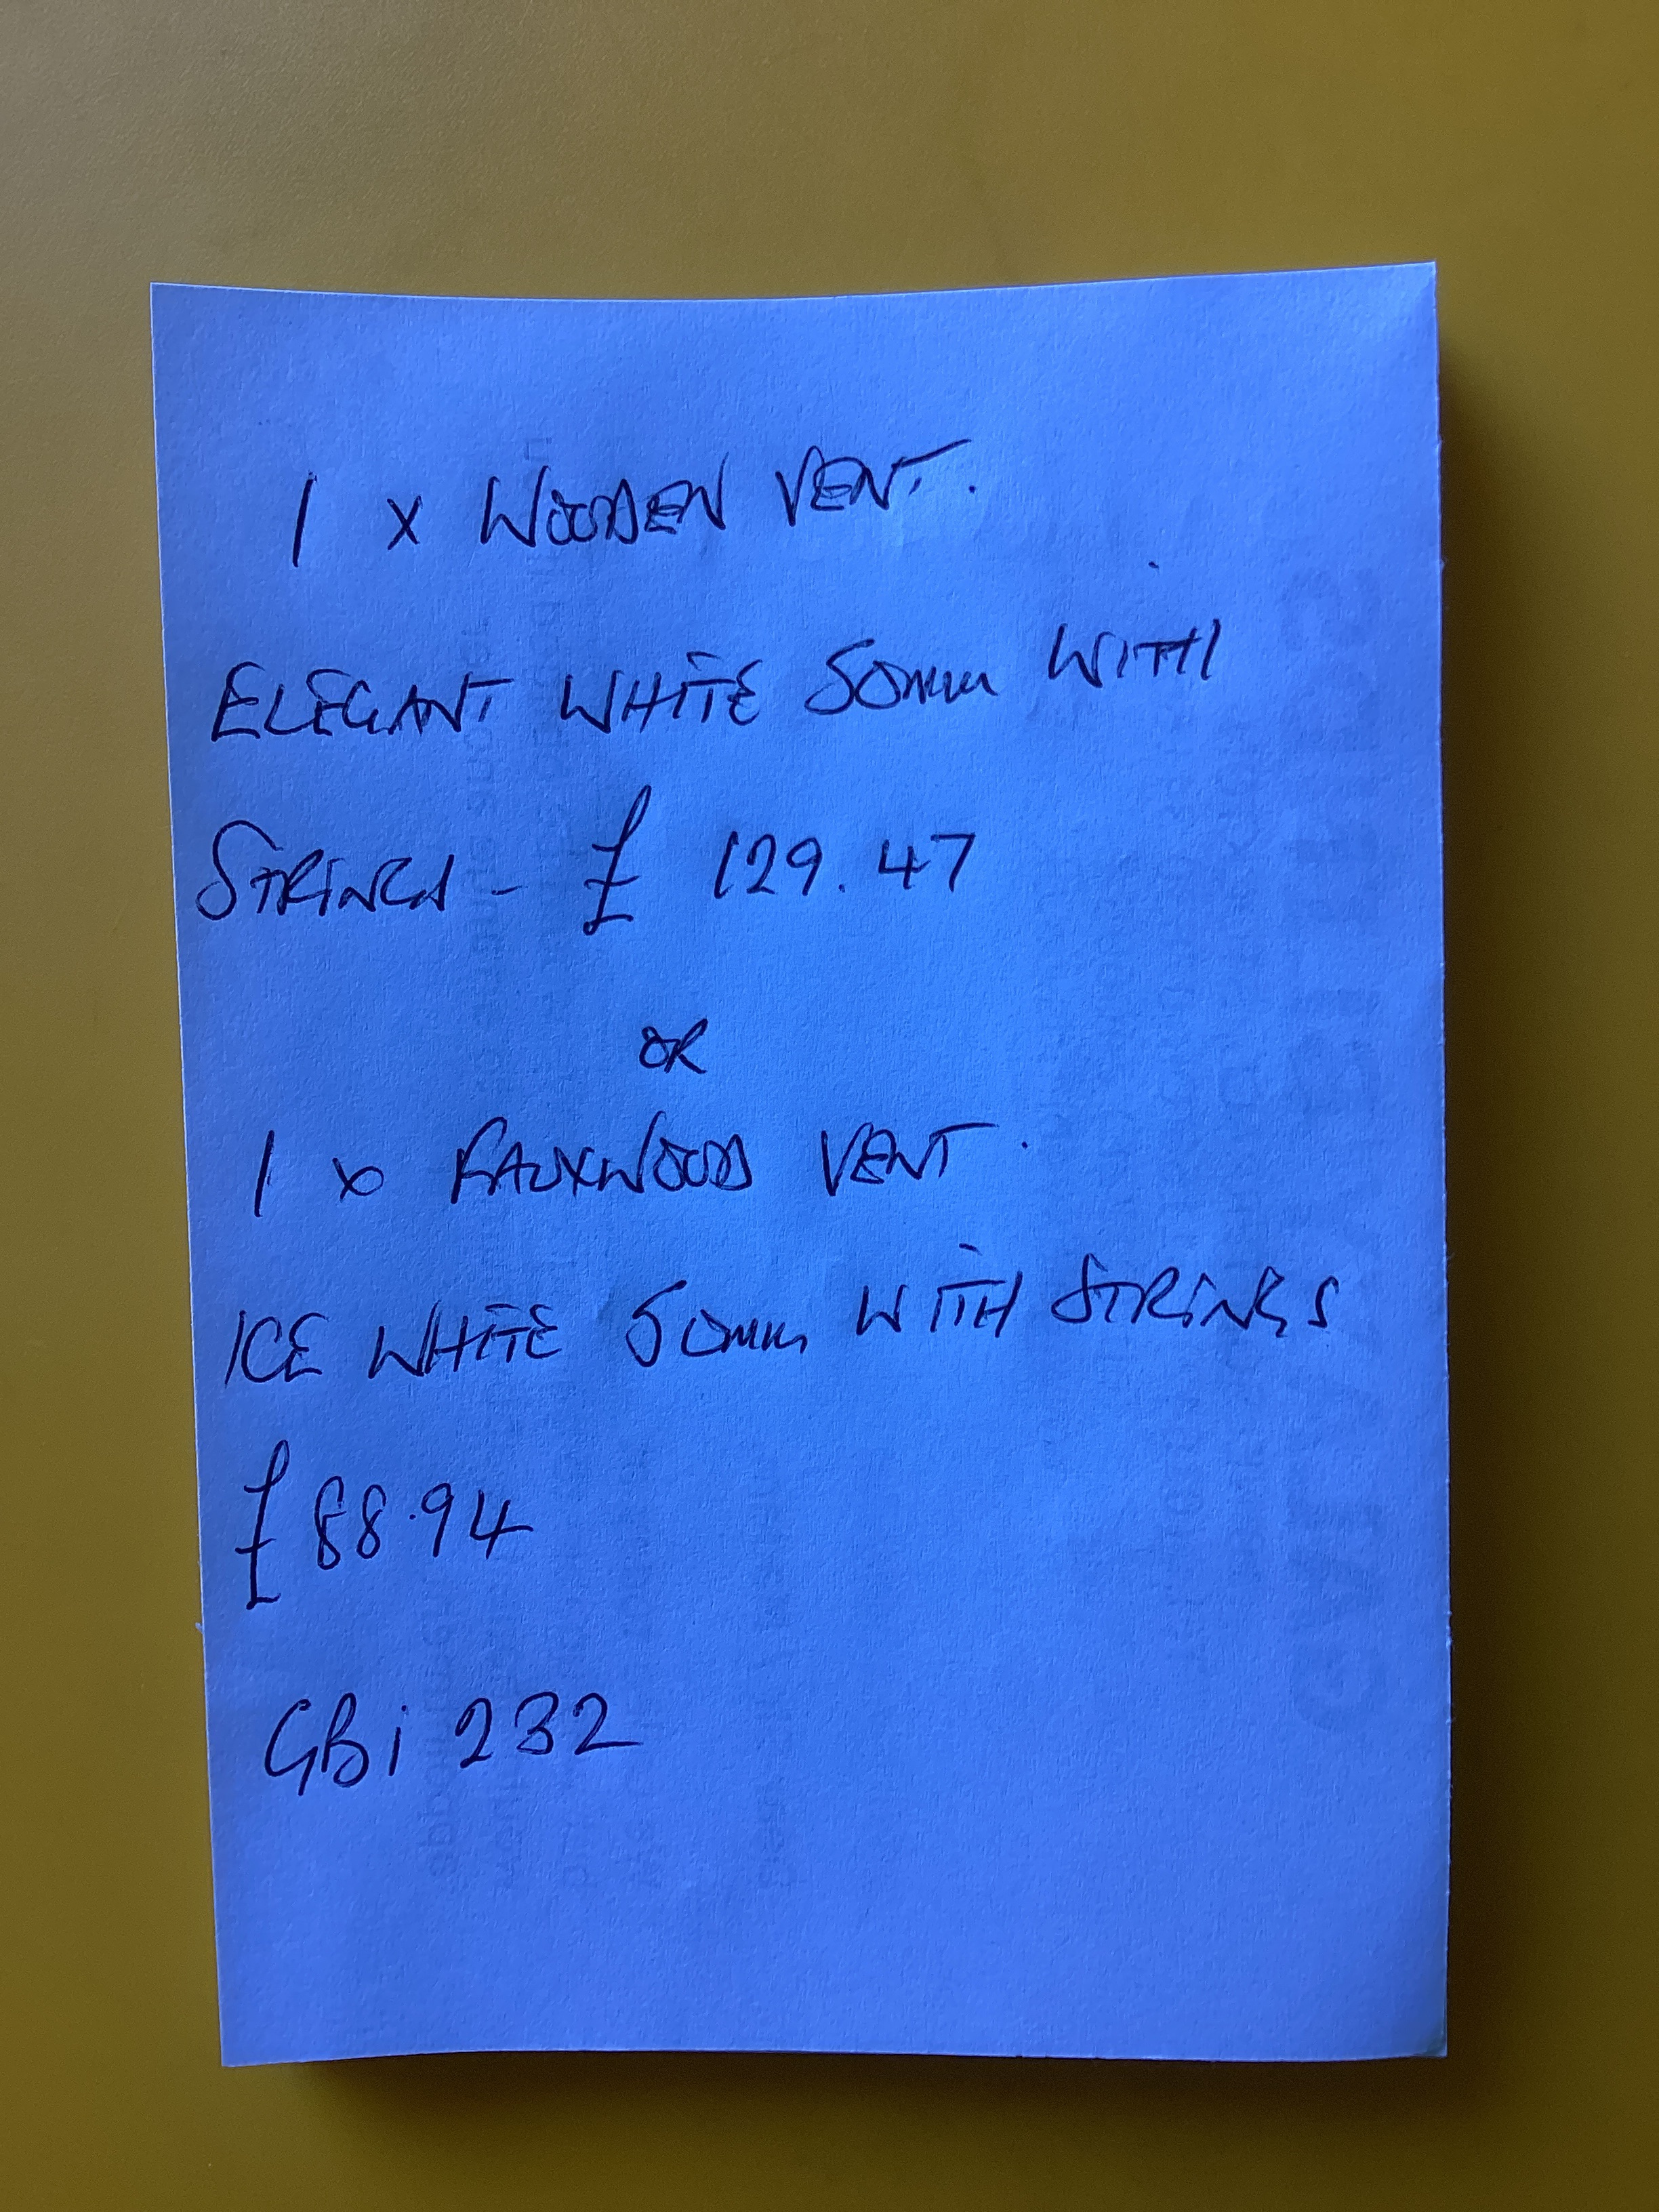 1 x WOODEN VENT.
ELEGANT WHITE 50mm WITH
STRINGS - £ 129.47
OR
1 x FAUXWOOD VENT.
ICE WHITE 50mm WITH STRINGS
£88.94
GBi 232